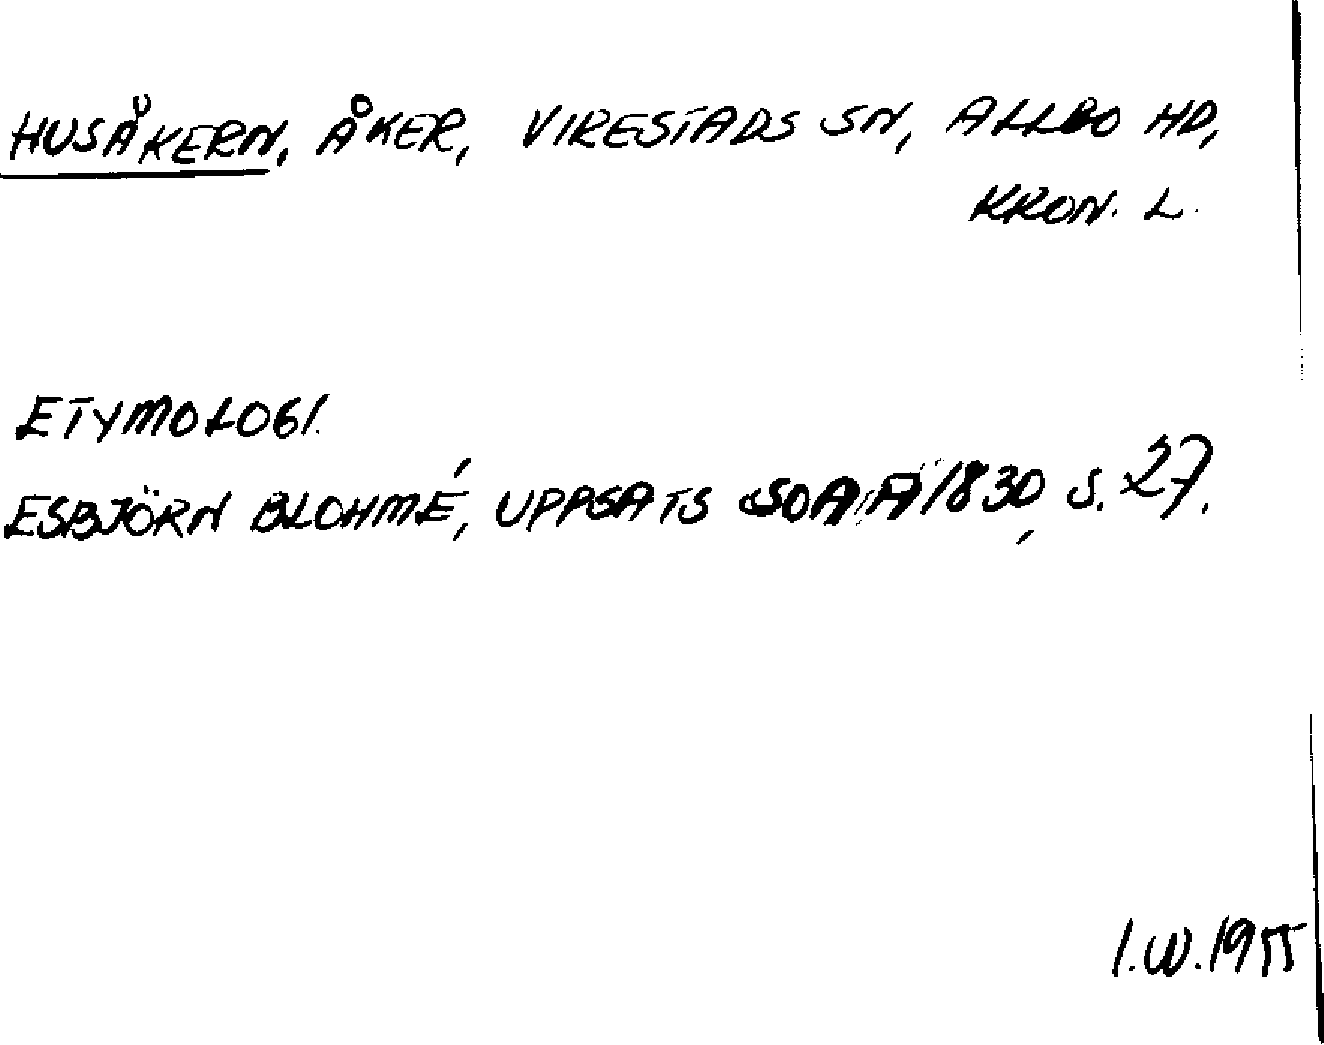 HUSÅKERN, ÅKER, VIRESTADS SN, ALLBO HD,
KRON. L.
ETYMOLOGI.
ESBJÖRN BLOHMÉ, UPPSATS SOAÄ 1830, S. 27.
I.W.1955